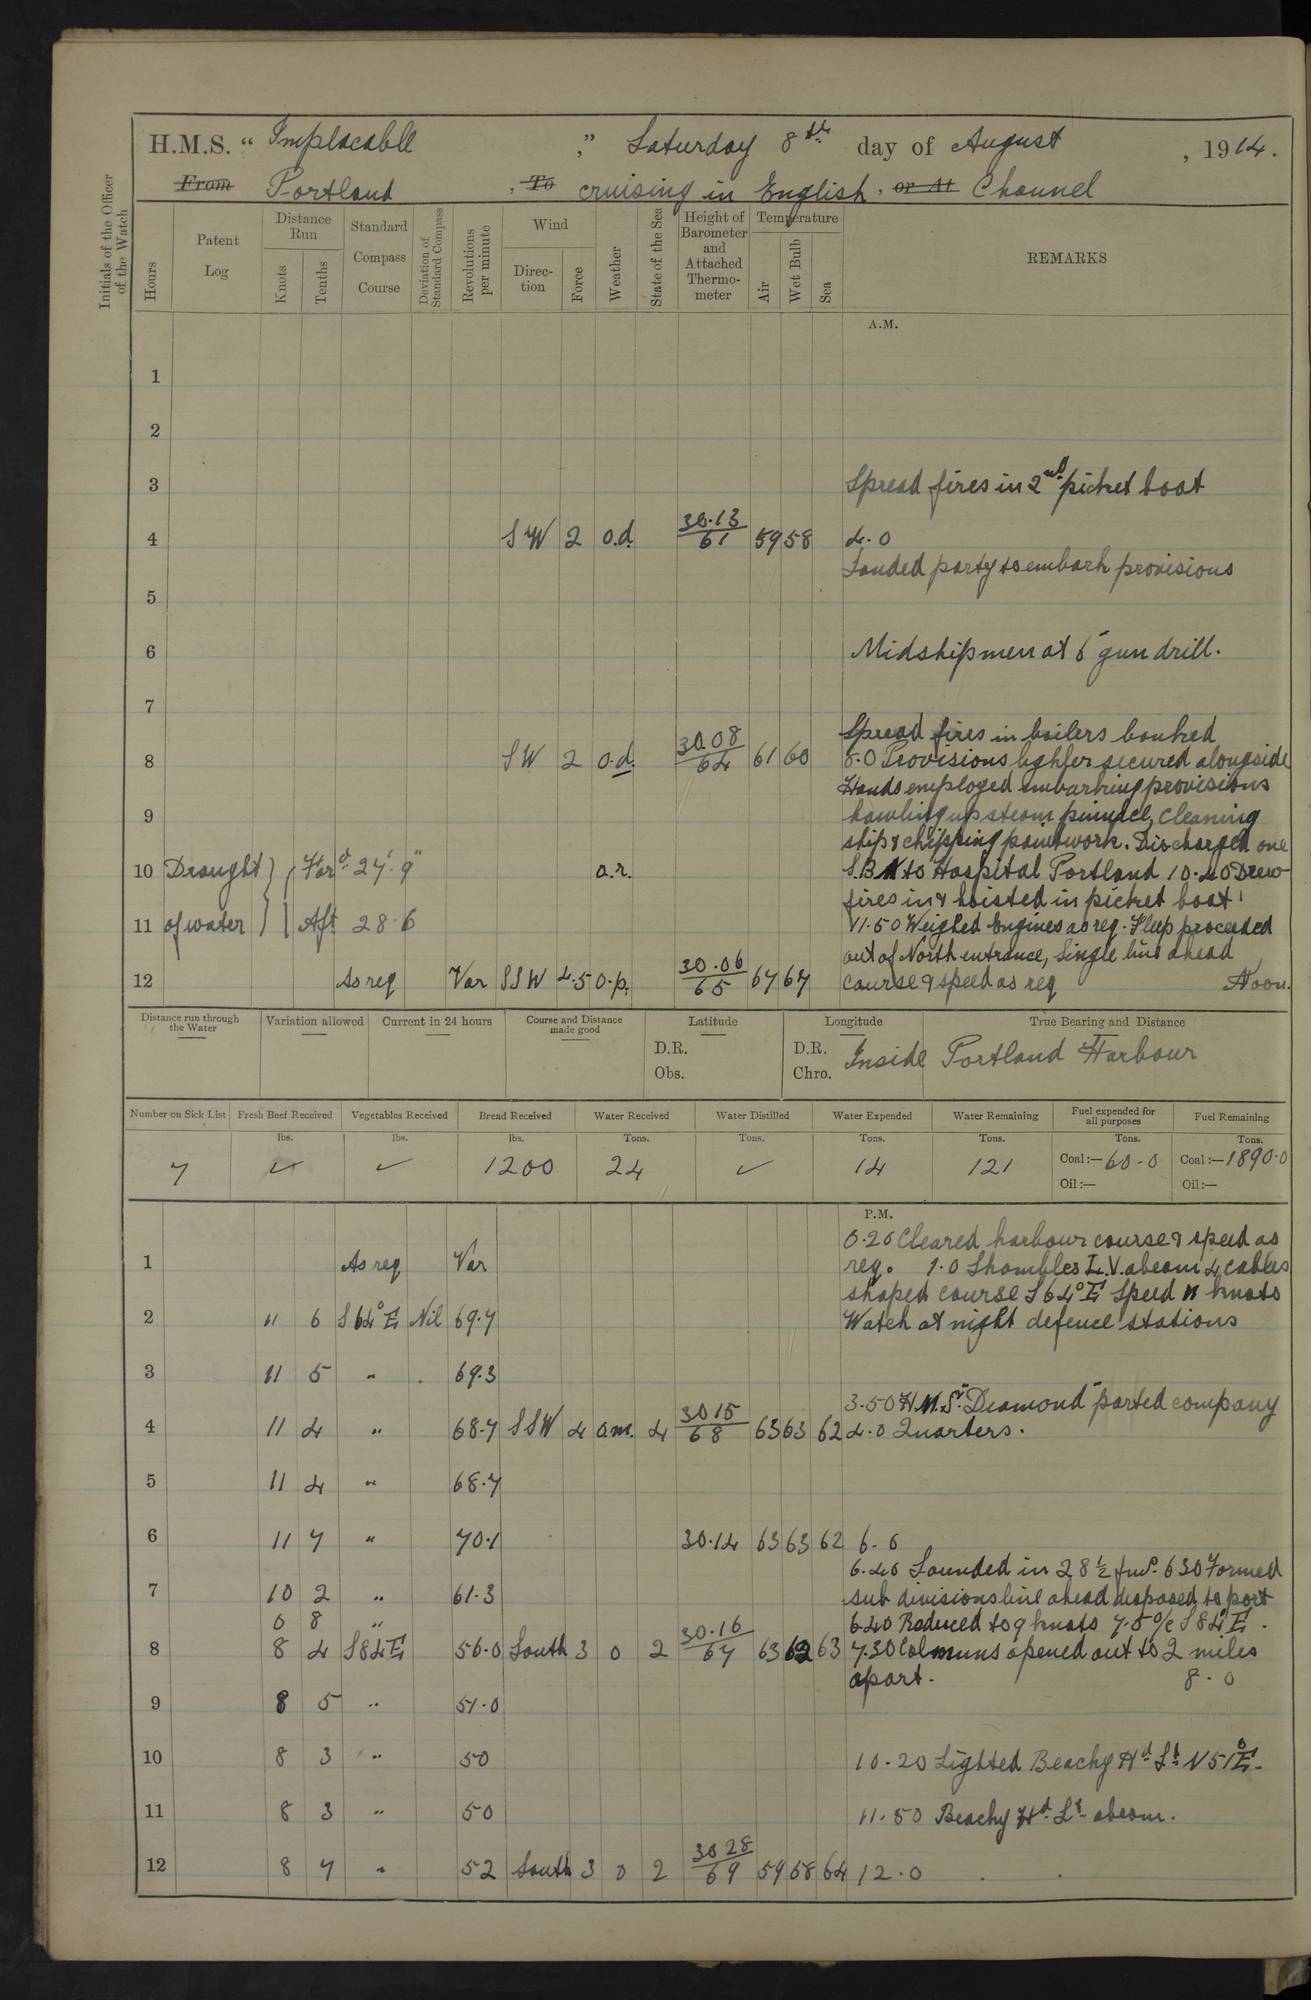 H.M.S. "Implacable," Saturday 8th day of August, 1914.
From Portland, To cruising in English, or At Channel
Initials of the Officer of the Watch
Hours
Patent Log
Distance Run
Knots
Tenths
Standard Compass Course
Deviation of Standard Compass
Revolutions per minute
Wind
Direction
Force
Weather
State of the Sea
Height of Barometer and Attached Thermometer
Temperature
Air
Wet Bulb
Sea
REMARKS
A.M.
1
2
3 Spread fires in 2nd picket boat
4 SW 2 o.d. 30.13/61 59 58 4.0
Landed party to embark provisions
5
6 Midshipmen at 6" gun drill.
7
Spread fires in boilers banked
8 SW 2 o.d. 30.08/64 61 60 8.0 Provisions lighter secured alongside
Hands employed embarking provisions
9 hauling up steam pinnace, cleaning
ship & chipping paintwork. Discharged one
10 Draught } { For'd 27'.9" o.r. S.B.A to Hospital Portland 10.40 Drew
fires in & hoisted in picket boat
11 of water } { Aft 28.6 11.50 Weighed Engines as req. Fleet proceeded
out of North entrance, Single line ahead
12 As req Var SSW 4.5 o.p. 30.06/65 67 67 course & speed as req Noon.
Distance run through the Water
Variation allowed
Current in 24 hours
Course and Distance made good
Latitude
D.R.
Obs.
Longitude
D.R.
Chro.
True Bearing and Distance
Inside Portland Harbour
Number on Sick List
Fresh Beef Received
Vegetables Received
Bread Received
Water Received
Water Distilled
Water Expended
Water Remaining
Fuel expended for all purposes
Fuel Remaining
lbs. lbs. lbs. Tons. Tons. Tons. Tons. Tons. Tons.
7 ✓ ✓ 1200 24 ✓ 14 121 Coal:—60.0 Coal:—1890.0
Oil:— Oil:—
P.M.
0.20 Cleared harbour course & speed as
1 As req Var req. 1.0 Shambles L.V. abeam 4 cables
shaped course S64°E Speed 11 knots
2 11 6 S64°E Nil 69.7 Watch at night defence stations
3 11 5 " . 69.3
3.50 H.M.S. "Diamond" parted company
4 11 4 " 68.7 SSW 4 o.m. 4 30.15/68 63 63 62 4.0 Quarters.
5 11 4 " 68.7
6 11 7 " 70.1 30.14 63 63 62 6.0
6.40 Sounded in 28½ fms. 6.30 Formed
7 10 2 " 61.3 sub divisions line ahead disposed to port
0 8 " 6.40 Reduced to 9 knots 7.5 a/c S84°E.
8 8 4 S84E 56.0 South 3 o 2 30.16/67 63 62 63 7.30 Columns opened out to 2 miles
apart. 8.0
9 8 5 " 51.0
10 8 3 " 50 10.20 Lighted Beachy Hd. Lt. N51°E.
11 8 3 " 50 11.50 Beachy Hd. Lt. abeam.
12 8 7 " 52 South 3 o 2 30 28/69 59 58 64 12.0